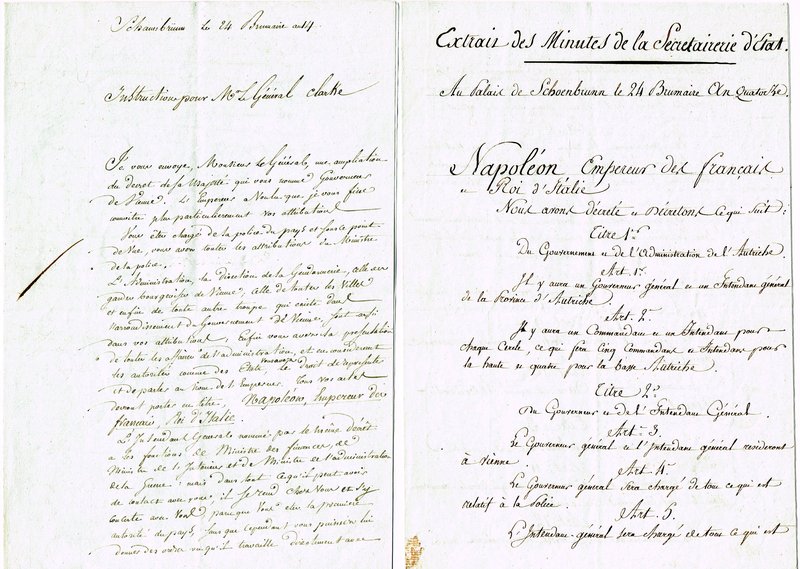 Schoenbrünn le 24 Brumaire an 14
Instruction pour Mr. Le Général Clarke
Je vous envoye, Monsieur Le Général, une ampliation
du decret de sa Majesté qui vous nomme Gouverneur
de Vienne. L'Empereur a voulu que je vous fisse
connaitre plus particulierement vos attributions
Vous êtes chargé de la police du pays et sous le point
de vue, vous avez toutes les attributions du Ministre
de la police.
L'Administration, la direction de la Gendarmerie, celle des
gardes bourgeoises de Vienne, celle de toutes les Villes
et enfin de toute autre troupe qui existe dans
l'arrondissement du Gouvernement de Vienne, sont aussi
dans vos attributions; Enfin vous aurez la présentation
de toutes les affaires de l'administration, et en considérant
les autorités comme des Etats, le droit de représenter
et de parler au nom de l'Empereur. Tous vos actes
devront porter en tête, Napoléon, Empereur des
français, Roi d'Italie.
L'Intendant Général nommé par le même décret
a les fonctions de Ministre des finances, de
Ministre de l'Intérieur et de Ministre de l'administration
de la Guerre: mais dans tout ce qu'il peut avoir
de contact avec vous, il se rend chez vous et s'y
concerte avec vous parce que vous êtes la première
autorité du pays, sans que cependant vous puissiez lui
donner des ordres vu qu'il travaille directement avec
Extrait des Minutes de la Secretairerie d'Etat.
Au Palais de Schoenbrunn le 24 Brumaire An Quatorze.
Napoléon Empereur des français
et Roi d'Italie
Nous avons décrété et Décretons ce qui suit:
Titre 1er
Du Gouvernement et de l'Administration de l'Autriche.
Art. 1er
Il y aura un Gouverneur général et un Intendant général
de la Province d'Autriche.
Art. 2.
Il y aura un Commandant et un Intendant pour
chaque Cercle, ce qui fera Cinq Commandans et Intendans pour
la haute et quatre pour la basse Autriche.
Titre 2e
Du Gouverneur et de l'Intendant Général.
Art. 3.
Le Gouverneur général et l'Intendant général resideront
à Vienne
Art. 4.
Le Gouverneur général sera chargé de tout ce qui est
relatif à la Police.
Art. 5.
L'Intendant général sera chargé de tout ce qui est